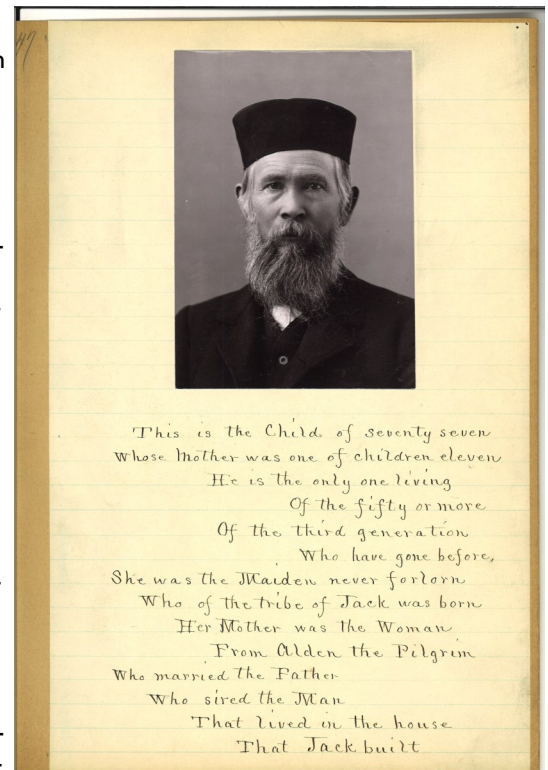 47
This is the Child of seventy seven
Whose Mother was one of children eleven
He is the only one living
Of the fifty or more
Of the third generation
Who have gone before,
She was the Maiden never forlorn
Who of the tribe of Jack was born
Her Mother was the Woman
From Alden the Pilgrim
Who married the Father
Who sired the Man
That lived in the house
That Jack built